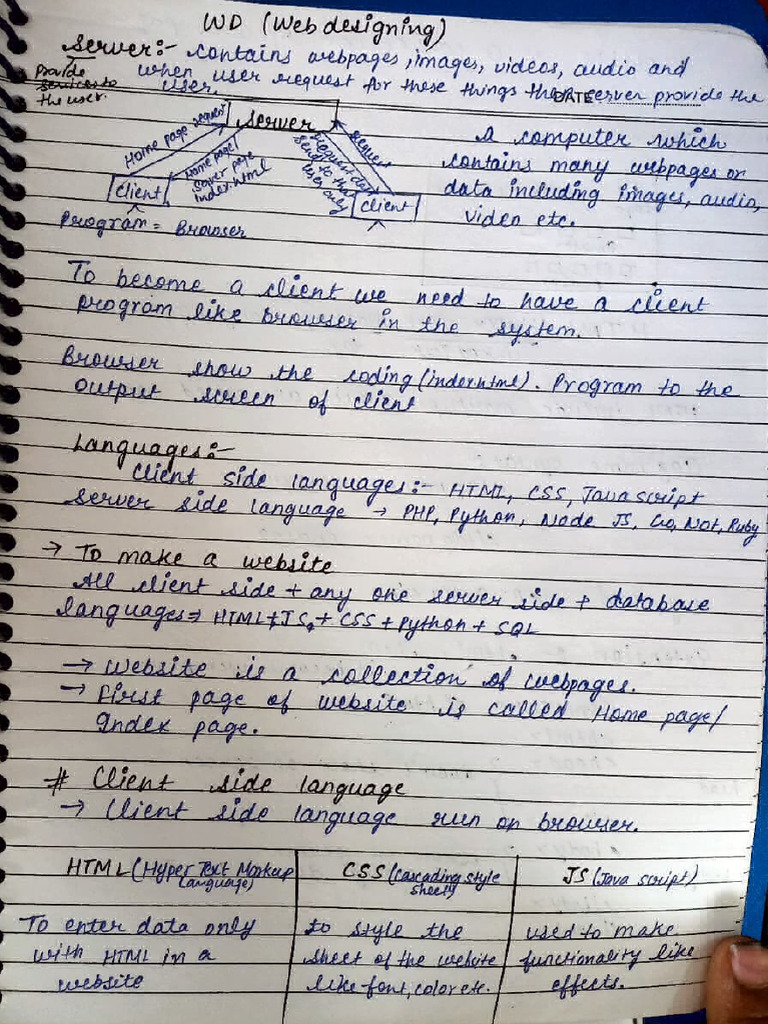 WD (Web designing)
Server:- contains webpages, images, videos, audio and
when user request for these things then server provide the
user.
Provide
services to
the user.
DATE
Server
Home page request
Home page/
Server page
index.html
Request
Request data
send to the
user only
Client
Client
Program = Browser
A computer which
contains many webpages or
data including images, audio,
video etc.
To become a client we need to have a client
program like browser in the system.
Browser show the coding (index.html). Program to the
output screen of client
Languages:-
Client side languages:- HTML, CSS, Java script
Server side language → PHP, Python, Node JS, Go, Not, Ruby
→ To make a website
All client side + any one server side + database
languages ⇒ HTML + JS + CSS + Python + SQL
→ Website is a collection of webpages.
→ First page of website is called Home page/
Index page.
# Client side language
→ Client side language run on browser.
HTML (Hyper Text Markup
Language)
To enter data only
with HTML in a
website
CSS (Cascading style
sheet)
to style the
sheet of the website
like font, color etc.
JS (Java script)
used to make
functionality like
effects.